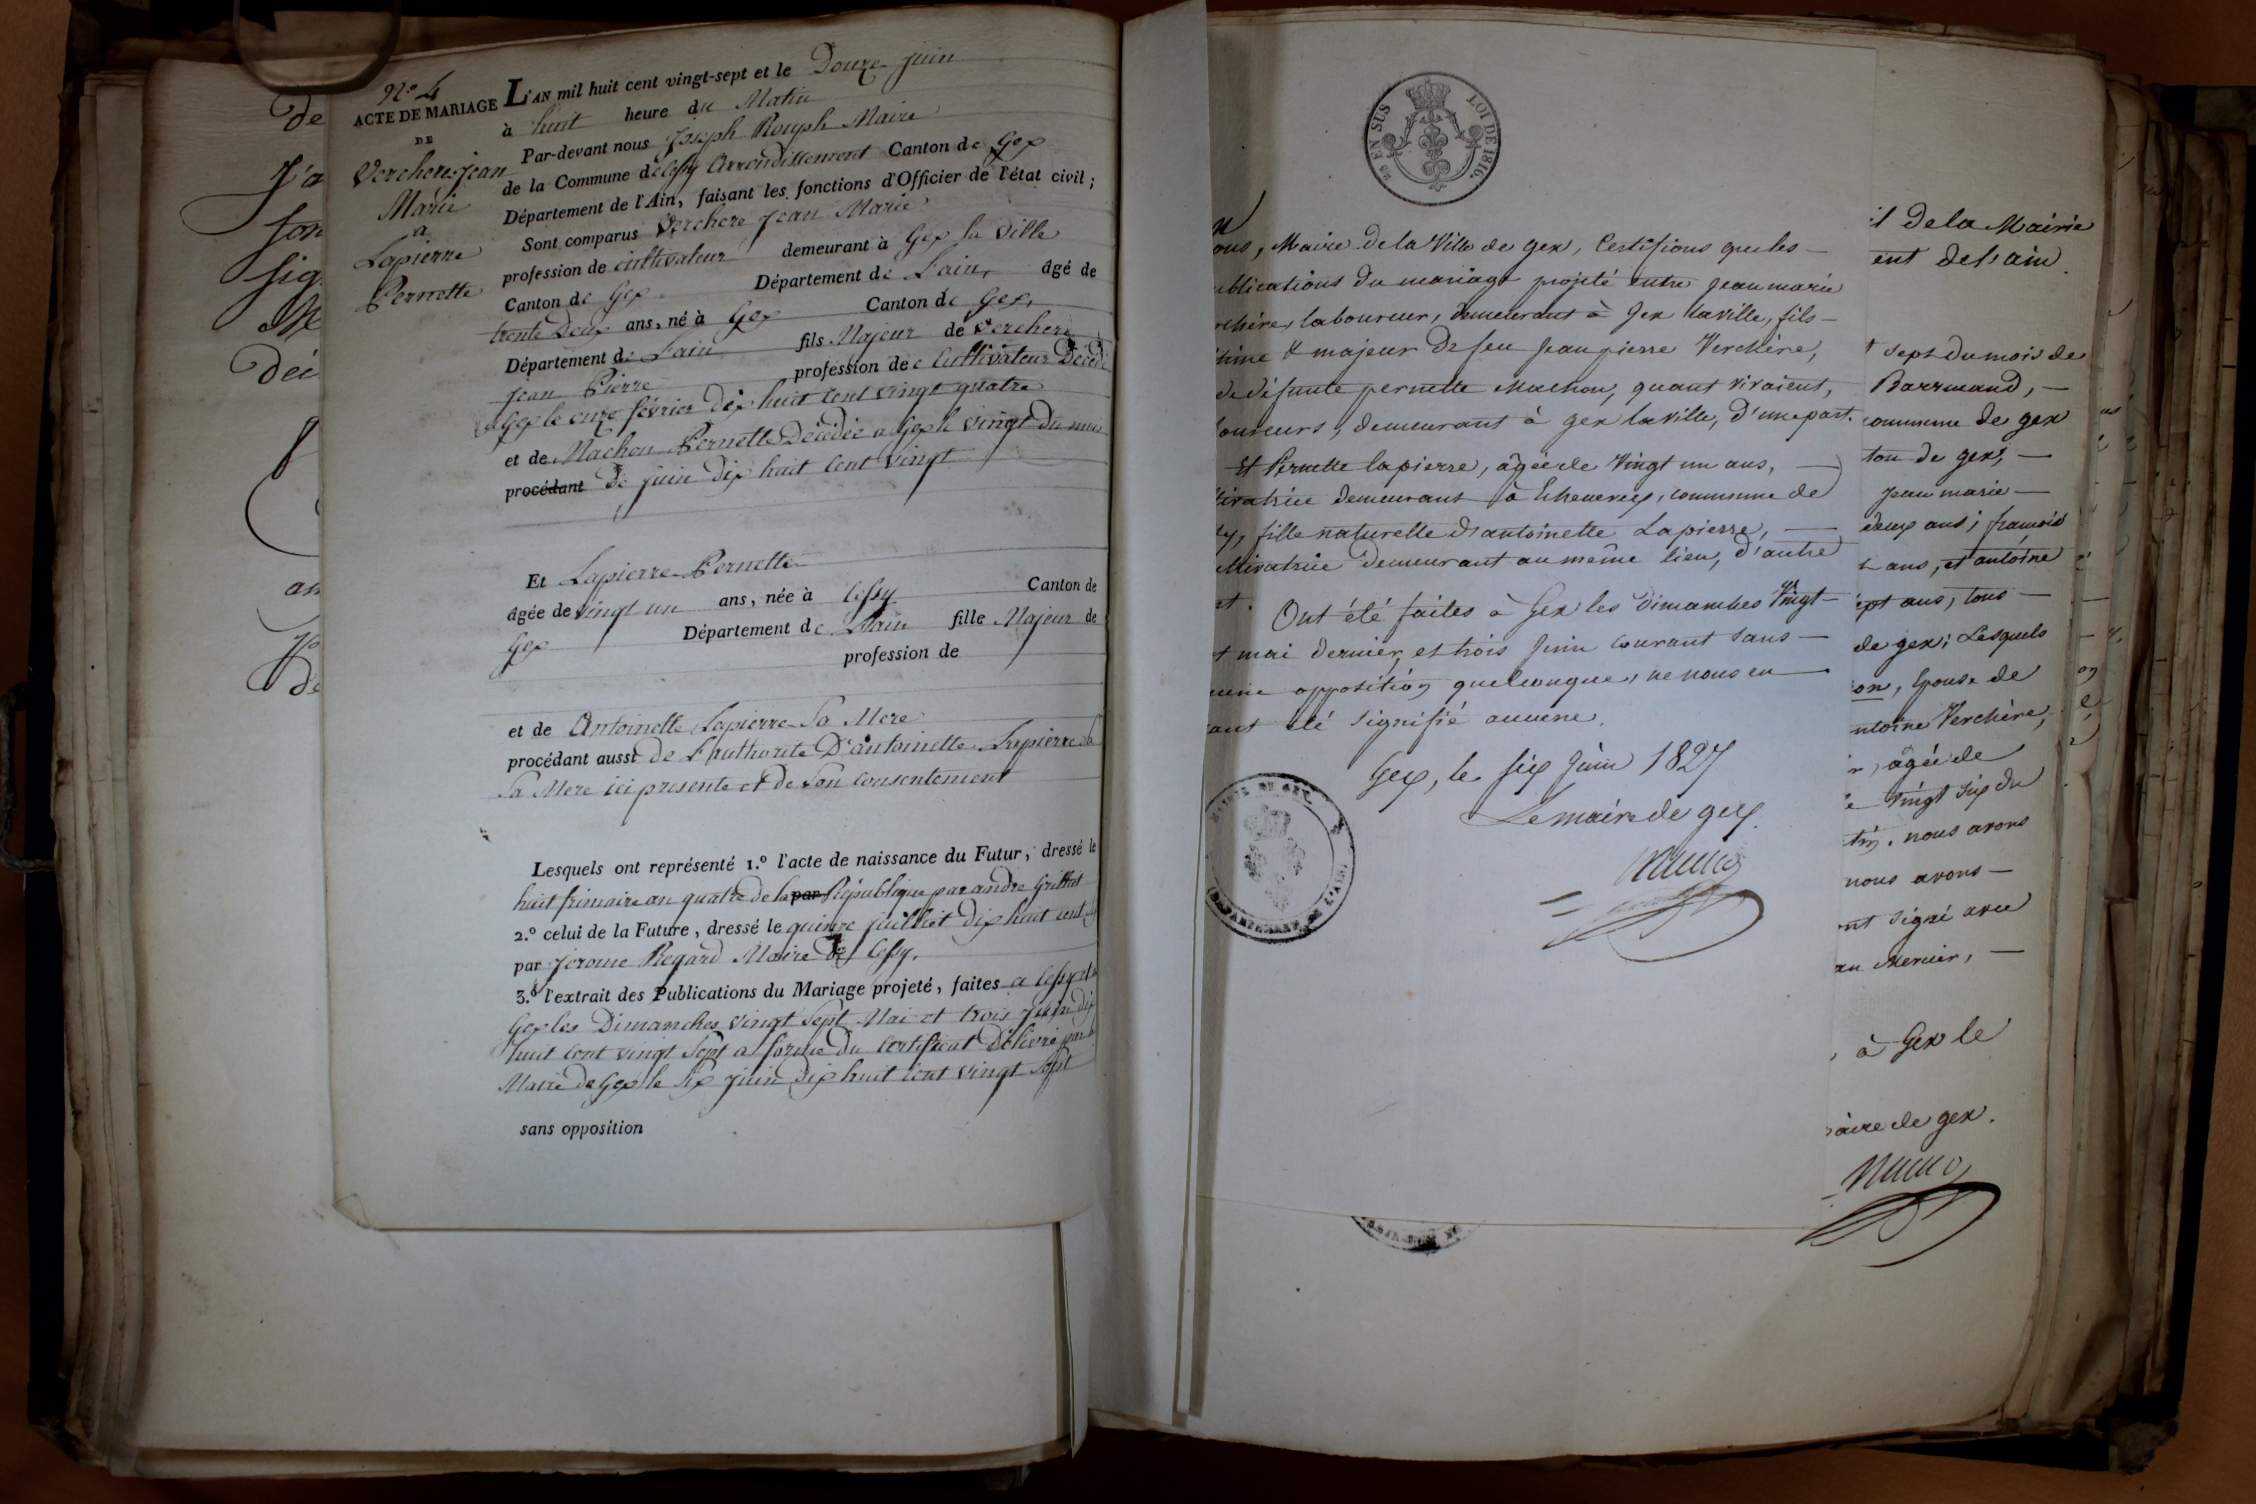 de
J'a
son
sig
Me
déc
an
de
N.o 4
ACTE DE MARIAGE
DE
Verchere Jean
Marie
a
Lapierre
Pernette
L'AN mil huit cent vingt-sept et le Douze juin
à huit heure du Matin
Par-devant nous Joseph Rouph Maire
de la Commune de Cessy Arrondissement Canton de Gex
Département de l'Ain, faisant les fonctions d'Officier de l'état civil;
Sont comparus Verchere Jean Marie
profession de cultivateur demeurant à Gex la ville
Canton de Gex Département de L'ain, âgé de
trente Deux ans, né à Gex Canton de Gex,
Département de L'ain fils Majeur de Verchere
Jean Pierre profession de Cultivateur Décédé
a Gex le onze février dix huit cent vingt quatre
et de Machon Pernette Décédée a Gex le vingt du mois
procédant de juin dix huit cent vingt
Et Lapierre Pernette
âgée de vingt un ans, née à Cessy Canton de
Gex Département de L'ain fille Majeur de
profession de
et de Antoinette Lapierre Sa Mere
procédant aussi de L'authorite D'antoinette Lapierre
Sa Mere ici presente et de son consentement
Lesquels ont représenté 1.º l'acte de naissance du Futur, dressé le
huit frimaire an quatre de la par République par andre
2.º celui de la Future, dressé le quinze juillet dix huit cent
par Jerome Regard Maire de Cessy.
3.º l'extrait des Publications du Mariage projeté, faites a Cessy et a
Gex les Dimanches vingt sept Mai et trois juin dix
huit cent vingt sept a forme du certificat Délivré par le
Maire de Gex le six juin dix huit cent vingt sept
sans opposition
EN SUS LOI DE 1816.
ous, Maire de la Ville de gex, Certifions que les
ublications du mariage projeté entre jean marie
rchère, laboureur, demeurant à Gex la ville, fils
itime & majeur de feu jean pierre Verchère,
de défunte pernette Machon, quant vivaient,
oureurs, demeurant à gex la ville, d'une part.
Et Pernette lapierre, âgée de vingt un ans,
tivatrice demeurant à Echenevex, commune de
y, fille naturelle d'antoinette Lapierre,
ltivatrice demeurant au même lieu, d'autre
rt. Ont été faites à Gex les dimanches Vingt
t mai dernier, et trois juin courant sans
cune opposition quelconque, ne nous en
ant été signifié aucune.
Gex, le six juin 1827
Le maire de gex.
MAIRIE DE GEX
(DEPARTEMENT DE L'AIN)
il de la Mairie
ent de l'ain.
t sept du mois de
Barrmand,
commune de gex
ton de gex,
jean marie
deux ans; françois
t ans, et antoine
ept ans, tous
de gex; Lesquels
on, Epouse de
ntoine Verchère,
âgée de
vingt six du
nous avons
nous avons
ont signé avec
an Mercier,
, à Gex le
aire de gex.